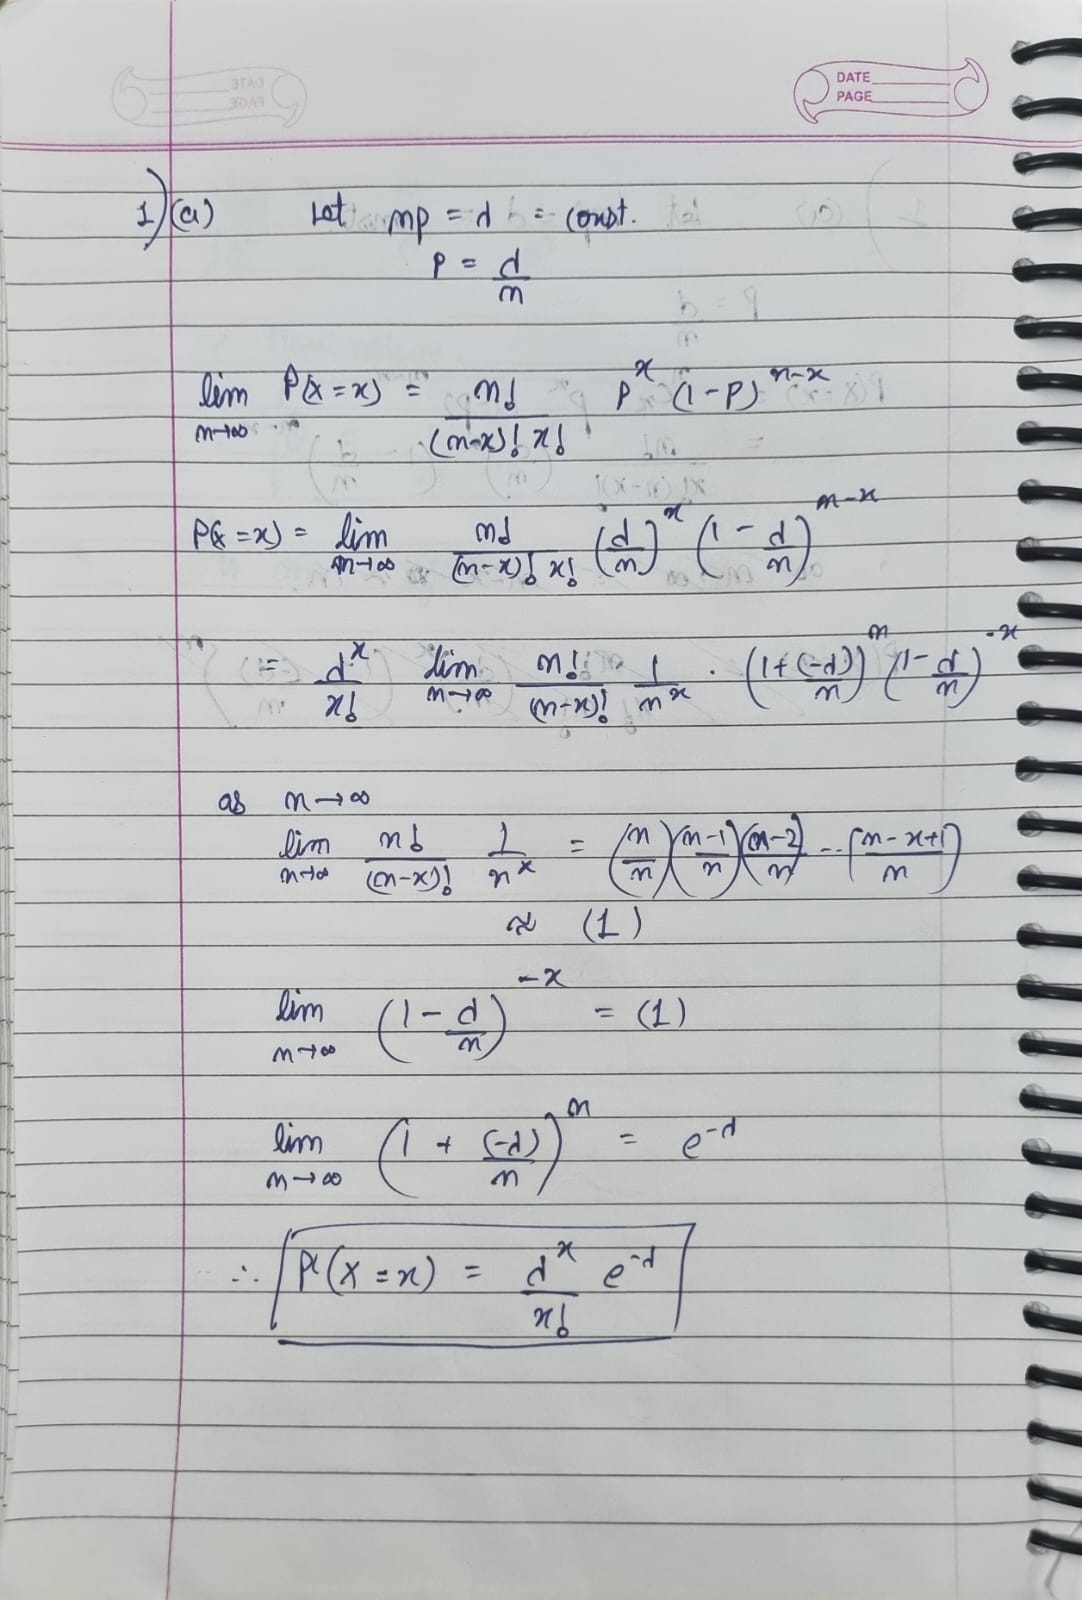 DATE
PAGE
1) (a) Let np = d = const.
P = d/n
lim n→∞ P(X=x) = n!/((n-x)! x!) p^x (1-p)^(n-x)
P(X=x) = lim n→∞ n!/((n-x)! x!) (d/n)^x (1 - d/n)^(n-x)
= d^x/x! lim n→∞ n!/(n-x)! 1/n^x · (1+(-d)/n)^n (1-d/n)^(-x)
as n→∞
lim n→∞ n!/(n-x)! 1/n^x = (n/n)((n-1)/n)((n-2)/n)--((n-x+1)/n)
≈ (1)
lim n→∞ (1 - d/n)^(-x) = (1)
lim n→∞ (1 + (-d)/n)^n = e^(-d)
∴ P(X=x) = d^x/x! e^(-d)